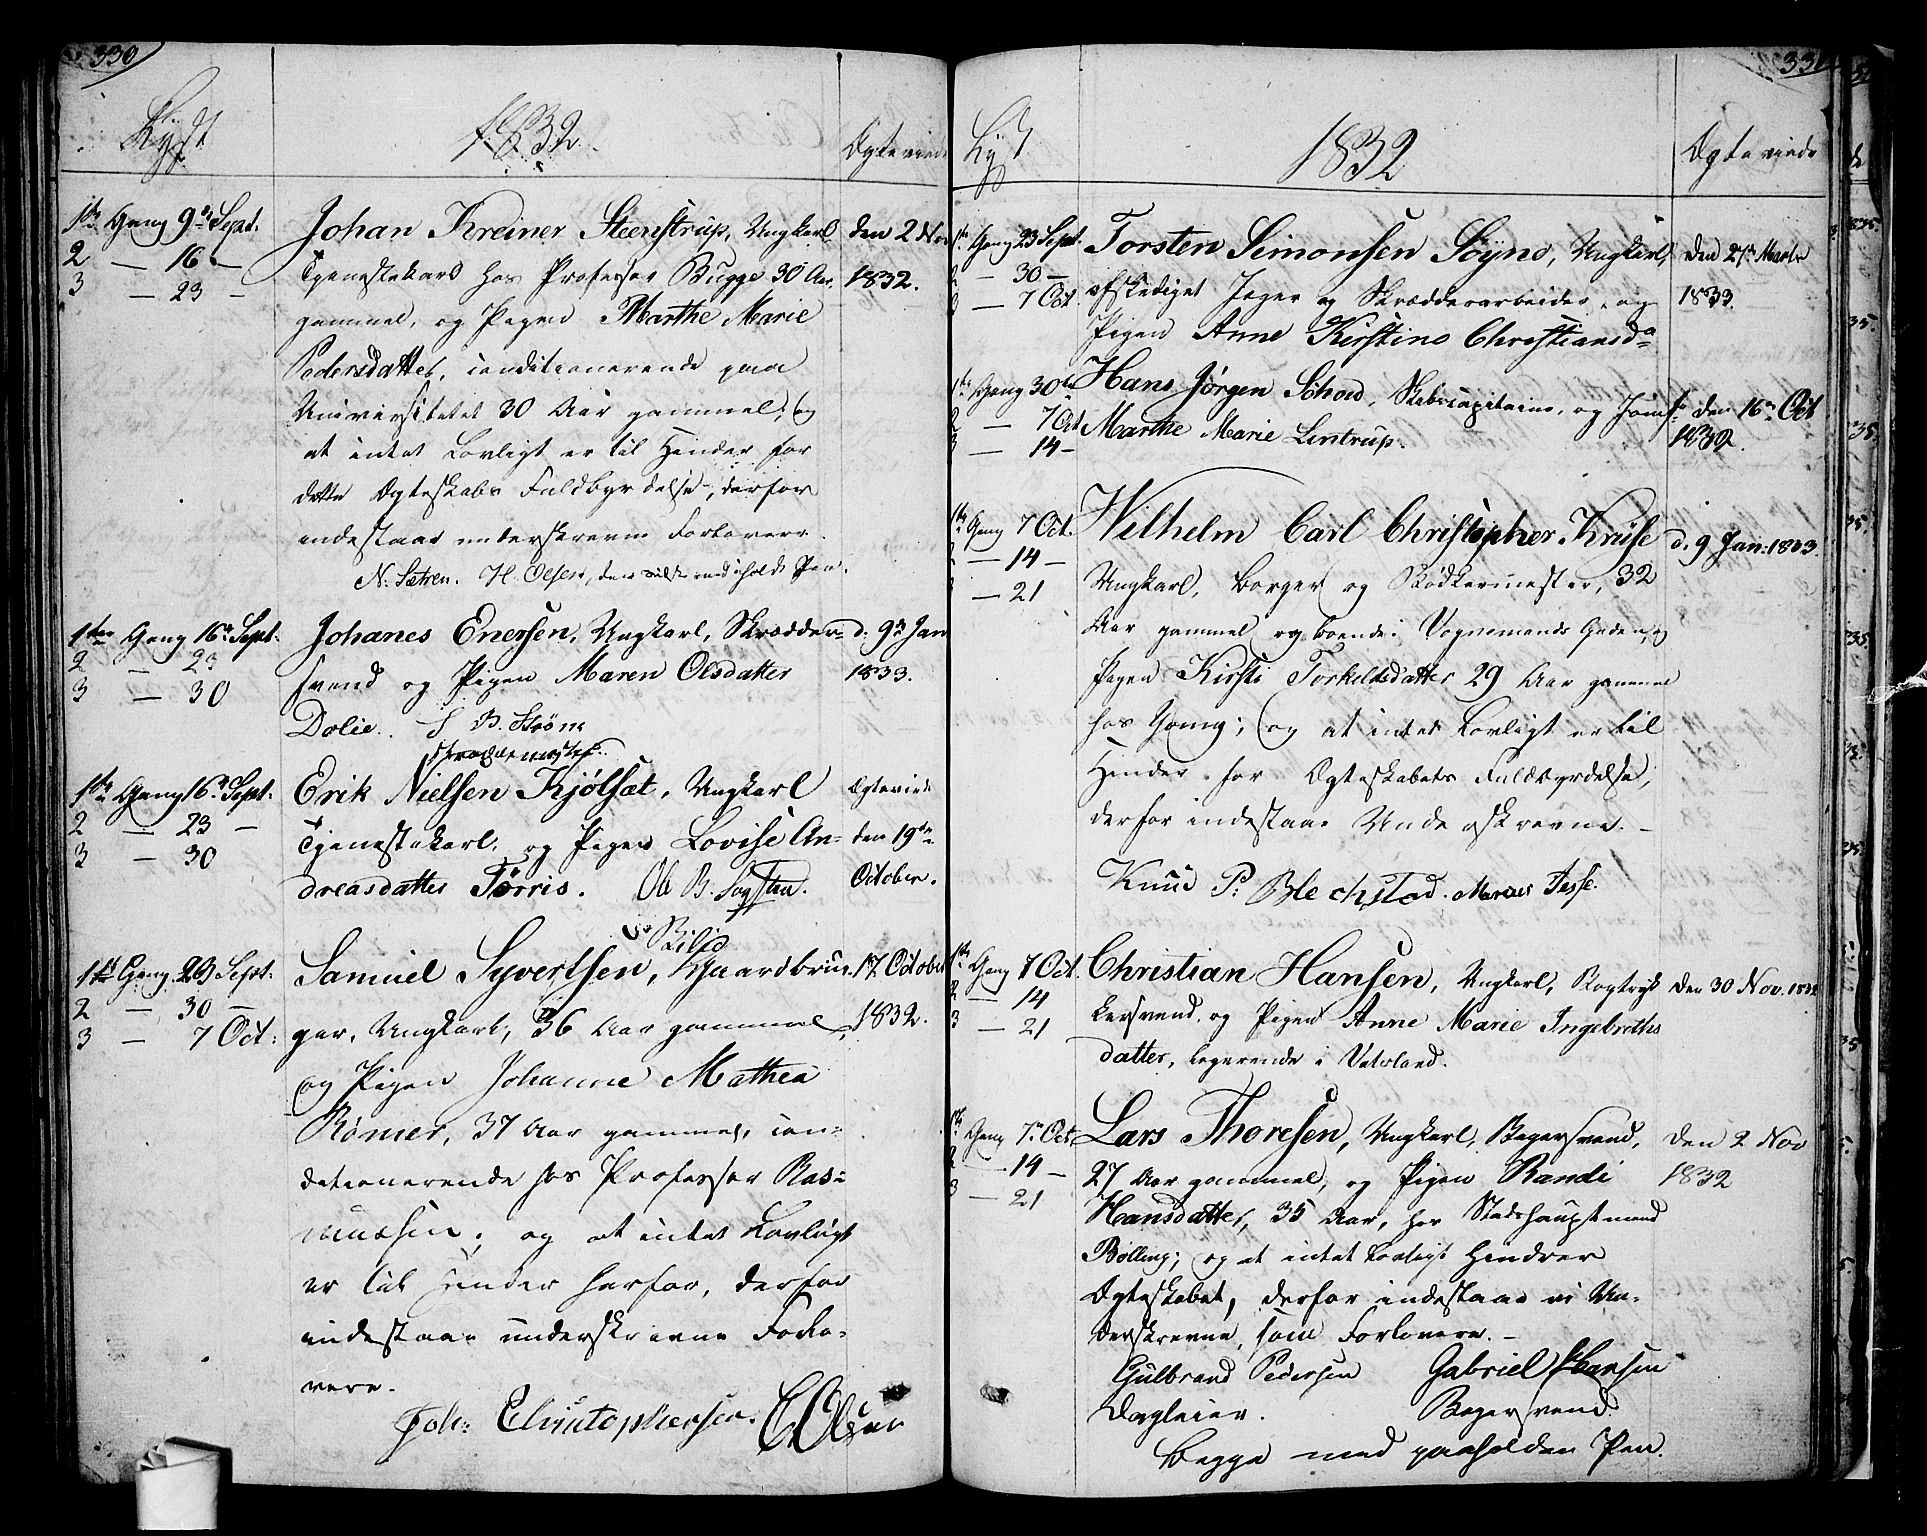 330
Lyst
1832
Ægteviede
1ste Gang 9de Sept.
2 — 16 —
3 — 23 —
Johan Kreiner Steenstrup, Ungkarl
Tjenestekarl hos Professor Bugge 30 Aar
gammel, og Pigen Marthe Marie
Pedersdatter, conditionerende paa
Universitetet 30 Aar gammel; og
at intet Lovligt er til Hinder for
dette Ægteskabs Fuldbyrdelse, derfor
indestaae underskrevne Forlovere.
N. Sætren. H. Olsen, den sidste med iholdt Pen.
den 2 Nov
1832.
1ste Gang 16de Sept.
2 — 23
3 — 30
Johanes Enersen, Ungkarl, Skrædder-
svend og Pigen Maren Olsdatter
Dolie. S B. Strøm
Skræddermester.
d. 9de Jan
1833.
1ste Gang 16de Sept.
2 — 23 —
3 — 30
Erik Nielsen Kjølsæt, Ungkarl
Tjenestekarl, og Pigen Lovise An-
dreasdatter Tørris. Ole B. Sogsten.
Ægteviede
den 19de
October.
1ste Gang 23 Sept.
2 — 30 —
3 — 7 Oct:
Samuel Syvertsen, Gaardbru-
ger, Ungkarl, 36 Aar gammel,
og Pigen Johanne Mathea
Römer, 37 Aar gammel, con-
ditionerende hos Professor Ras-
mussen; og at intet Lovligt
er til Hinder herfor, derfor
indestaae underskrevne Forlo-
vere.
Joh: Christophersen. C. Olsen
17 October
1832.
331
Lyst
1832
Ægteviede
1ste Gang 23 Sept.
2 — 30 —
3 — 7 Oct
Torsten Simonsen Söyne, Ungkarl,
afskediget Jæger og Skrædderarbeider, og
Pigen Anne Kirstine Christiansda
den 21de Marts
1833.
1ste Gang 30te
2 — 7 Oct
3 — 14 —
Hans Jørgen Schow, Skibscapitaine, og Jomfr
Marthe Marie Lintrup.
den 16de Oct
1832.
1ste Gang 7 Oct.
2 — 14 —
3 — 21
Wilhelm Carl Christopher Kruse
Ungkarl, Borger og Bødkermester, 32
Aar gammel og boende i Vognmands Gaden, og
Pigen Kirsti Torkildsdatter 29 Aar gammel
hos ham; og at intet Lovligt er til
Hinder for Ægteskabets Fuldbyrdelse,
derfor indestaae Underskrevne. —
Knud P: Blechstad. Marcus Jesse.
d. 9 Jan: 1833.
1ste Gang 7 Oct.
2 — 14
3 — 21
Christian Hansen, Ungkarl, Bogtryk
kersvend, og Pigen Anne Marie Ingebreths
datter, logerende i Vaterland.
den 30 Nov. 1832
1ste Gang 7de Oct.
2 — 14 —
3 — 21
Lars Thoresen, Ungkarl, Bagersvend,
27 Aar gammel, og Pigen Randi
Hansdatter, 35 Aar, hos Stadshauptmand
Bølling; og at intet Lovligt Hindrer
Ægteskabet, derfor indestaae vi Un-
derskrevne, som Forlovere. —
Gulbrand Pedersen Gabriel Hansen
Dagleier. Bagersvend.
Begge med paaholden Pen.
den 2 Nov
1832